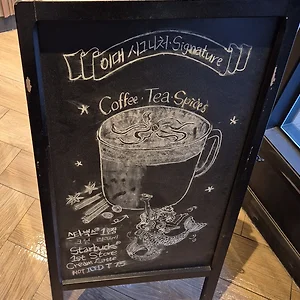 이대 시그니처·Signature
Coffee·Tea·Spices
스타벅스 1호점
Starbucks
1st Store
Cream Latte
HOT ICED T 7.5